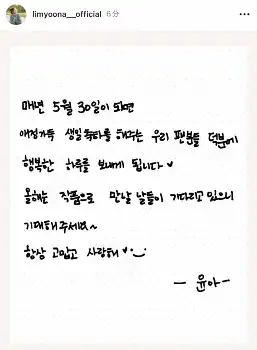 limyoona__official 6分
매년 5월 30일이 되면
애정가득 생일축하를 해주는 우리 팬분들 덕분에
행복한 하루를 보내게 됩니다♥
올해는 작품으로 만날 날들이 기다리고 있으니
기대해주세요~
항상 고맙고 사랑해♥
- 윤아 -